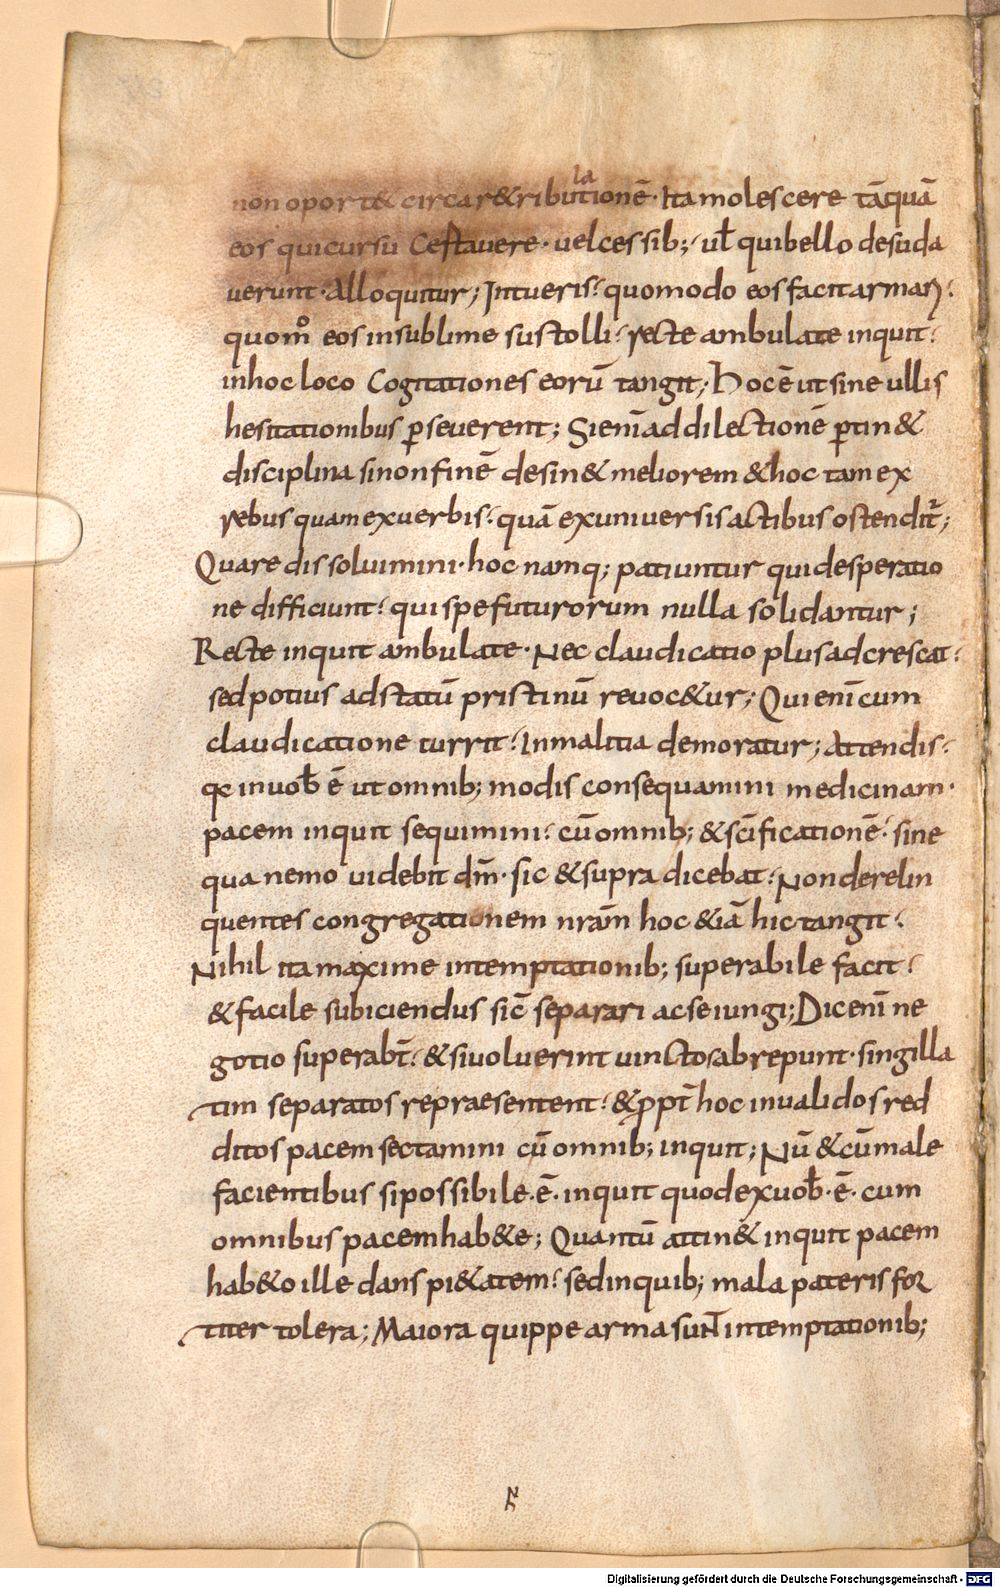 la
non oport& circa r&ributionē· Ita molescere tāquā
eos qui cursu Certavere· uel cessib; ul̄ qui bello desuda
verunt· Alloquitur; Intueris· quomodo eos facit armari·
quom̊ eos in sublime sustolli· recte ambulate inquit·
in hoc loco Cogitationes eorū tangit; Hoc ē ut sine ullis
hesitationibus p̱severent; Si enī ad dilectionē p̱tin&
disciplina si non finē desin& meliorem & hoc tam ex
rebus quam ex verbis· quā ex universis actibus ostendit̄;
Quare dissoluimini· hoc namq; patiuntur qui desperatio
ne difficiunt· qui spe futurorum nulla solidantur;
Recte inquit ambulate· Nec claudicatio plus adcrescat·
sed potius ad statū pristinū revoc&ur; Qui enī cum
claudicatione currit· In malitia demoratur; Attendis·
qc in uob̄ ē ut omnib; modis consequamini medicinam·
pacem inquit sequimini· cū omnib; & sc̄ificationē· sine
qua nemo videbit dm̄· sic & supra dicebat· Non derelin
quentes congregationem nrām hoc & iā hic tangit·
Nihil ita maxime in temptationib; superabile facit·
& facile subiciendus sic̄ separari ac seiungi; Dic enī ne
gotio superabt̄· & si voluerint vinctos abrepunt· singilla
tim separatos repraesentent· & ppt̄ hoc invalidos red
ditos pacem sectamini cū omnib; inquit; Nū & cū male
facientibus si possibile· ē· inquit quod ex uob̄· ē· cum
omnibus pacem hab&e; Quantū attin& inquit pacem
hab&o ille dans pi&atem· sed inquib; mala pateris for
titer tolera; Maiora quippe arma sunt in temptationib;
Digitalisierung gefördert durch die Deutsche Forschungsgemeinschaft - DFG